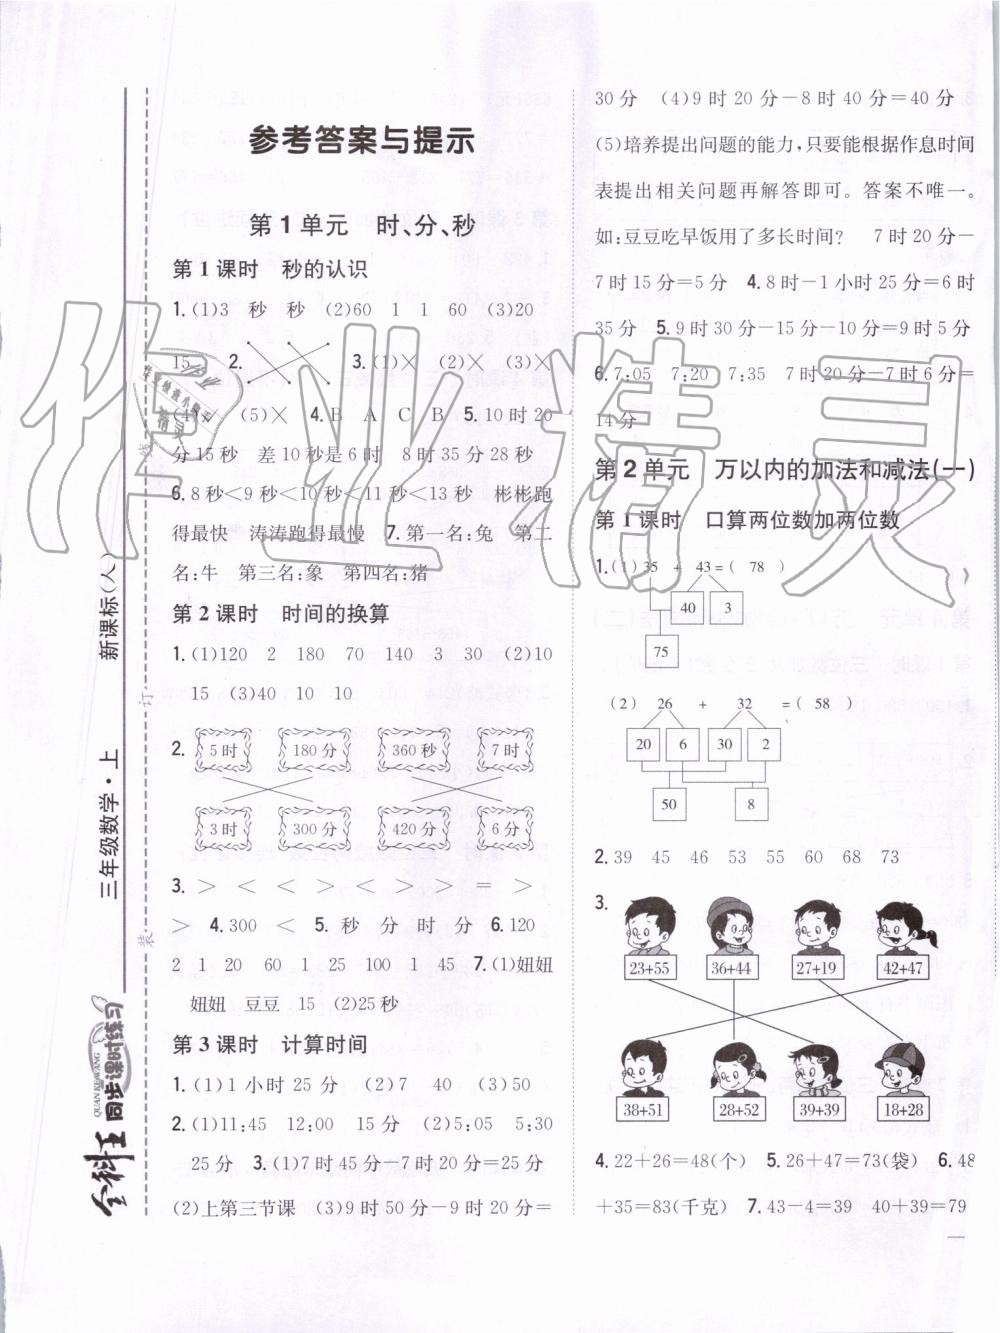 参考答案与提示
第1单元　时、分、秒
第1课时　秒的认识
1.(1)3　秒　秒　(2)60　1　1　60　(3)20
15　2.　3.(1)×　(2)×　(3)×
(5)×　4.B　A　C　B　5.10时20
分15秒　差10秒是6时　8时35分28秒
6.8秒<9秒<10秒<11秒<13秒　彬彬跑
得最快　涛涛跑得最慢　7.第一名:兔　第二
名:牛　第三名:象　第四名:猪
第2课时　时间的换算
1.(1)120　2　180　70　140　3　30　(2)10
15　(3)40　10　10
2.　5时　180分　360秒　7时
3时　300分　420分　6分
3.>　<　<　>　<　>　>　=　>
>　4.300　<　5.秒　分　时　分　6.120
2　1　20　60　1　25　100　1　45　7.(1)妞妞
妞妞　豆豆　15　(2)25秒
第3课时　计算时间
1.(1)1小时25分　(2)7　40　(3)50
2.(1)11:45　12:00　15分　(2)5:05　5:30
25分　3.(1)7时45分-7时20分=25分
(2)上第三节课　(3)9时50分-9时20分=
30分　(4)9时20分-8时40分=40分
(5)培养提出问题的能力,只要能根据作息时间
表提出相关问题再解答即可。答案不唯一。
如:豆豆吃早饭用了多长时间?　7时20分-
7时15分=5分　4.8时-1小时25分=6时
35分　5.9时30分-15分-10分=9时5分
6.7:05　7:20　7:35　7时20分-7时6分=
14分
第2单元　万以内的加法和减法(一)
第1课时　口算两位数加两位数
1.(1)35 + 43=( 78 )
40　3
75
(2) 26 + 32 =( 58 )
20　6　30　2
50　8
2.39　45　46　53　55　60　68　73
3.
23+55　36+44　27+19　42+47
38+51　28+52　39+39　18+28
4.22+26=48(个)　5.26+47=73(袋)　6.48
+35=83(千克)　7.43-4=39　40+39=79
一
新课标(人)
三年级数学·上
QUAN KE WANG
同步课时练习
全科王
装
订
线
作业精灵